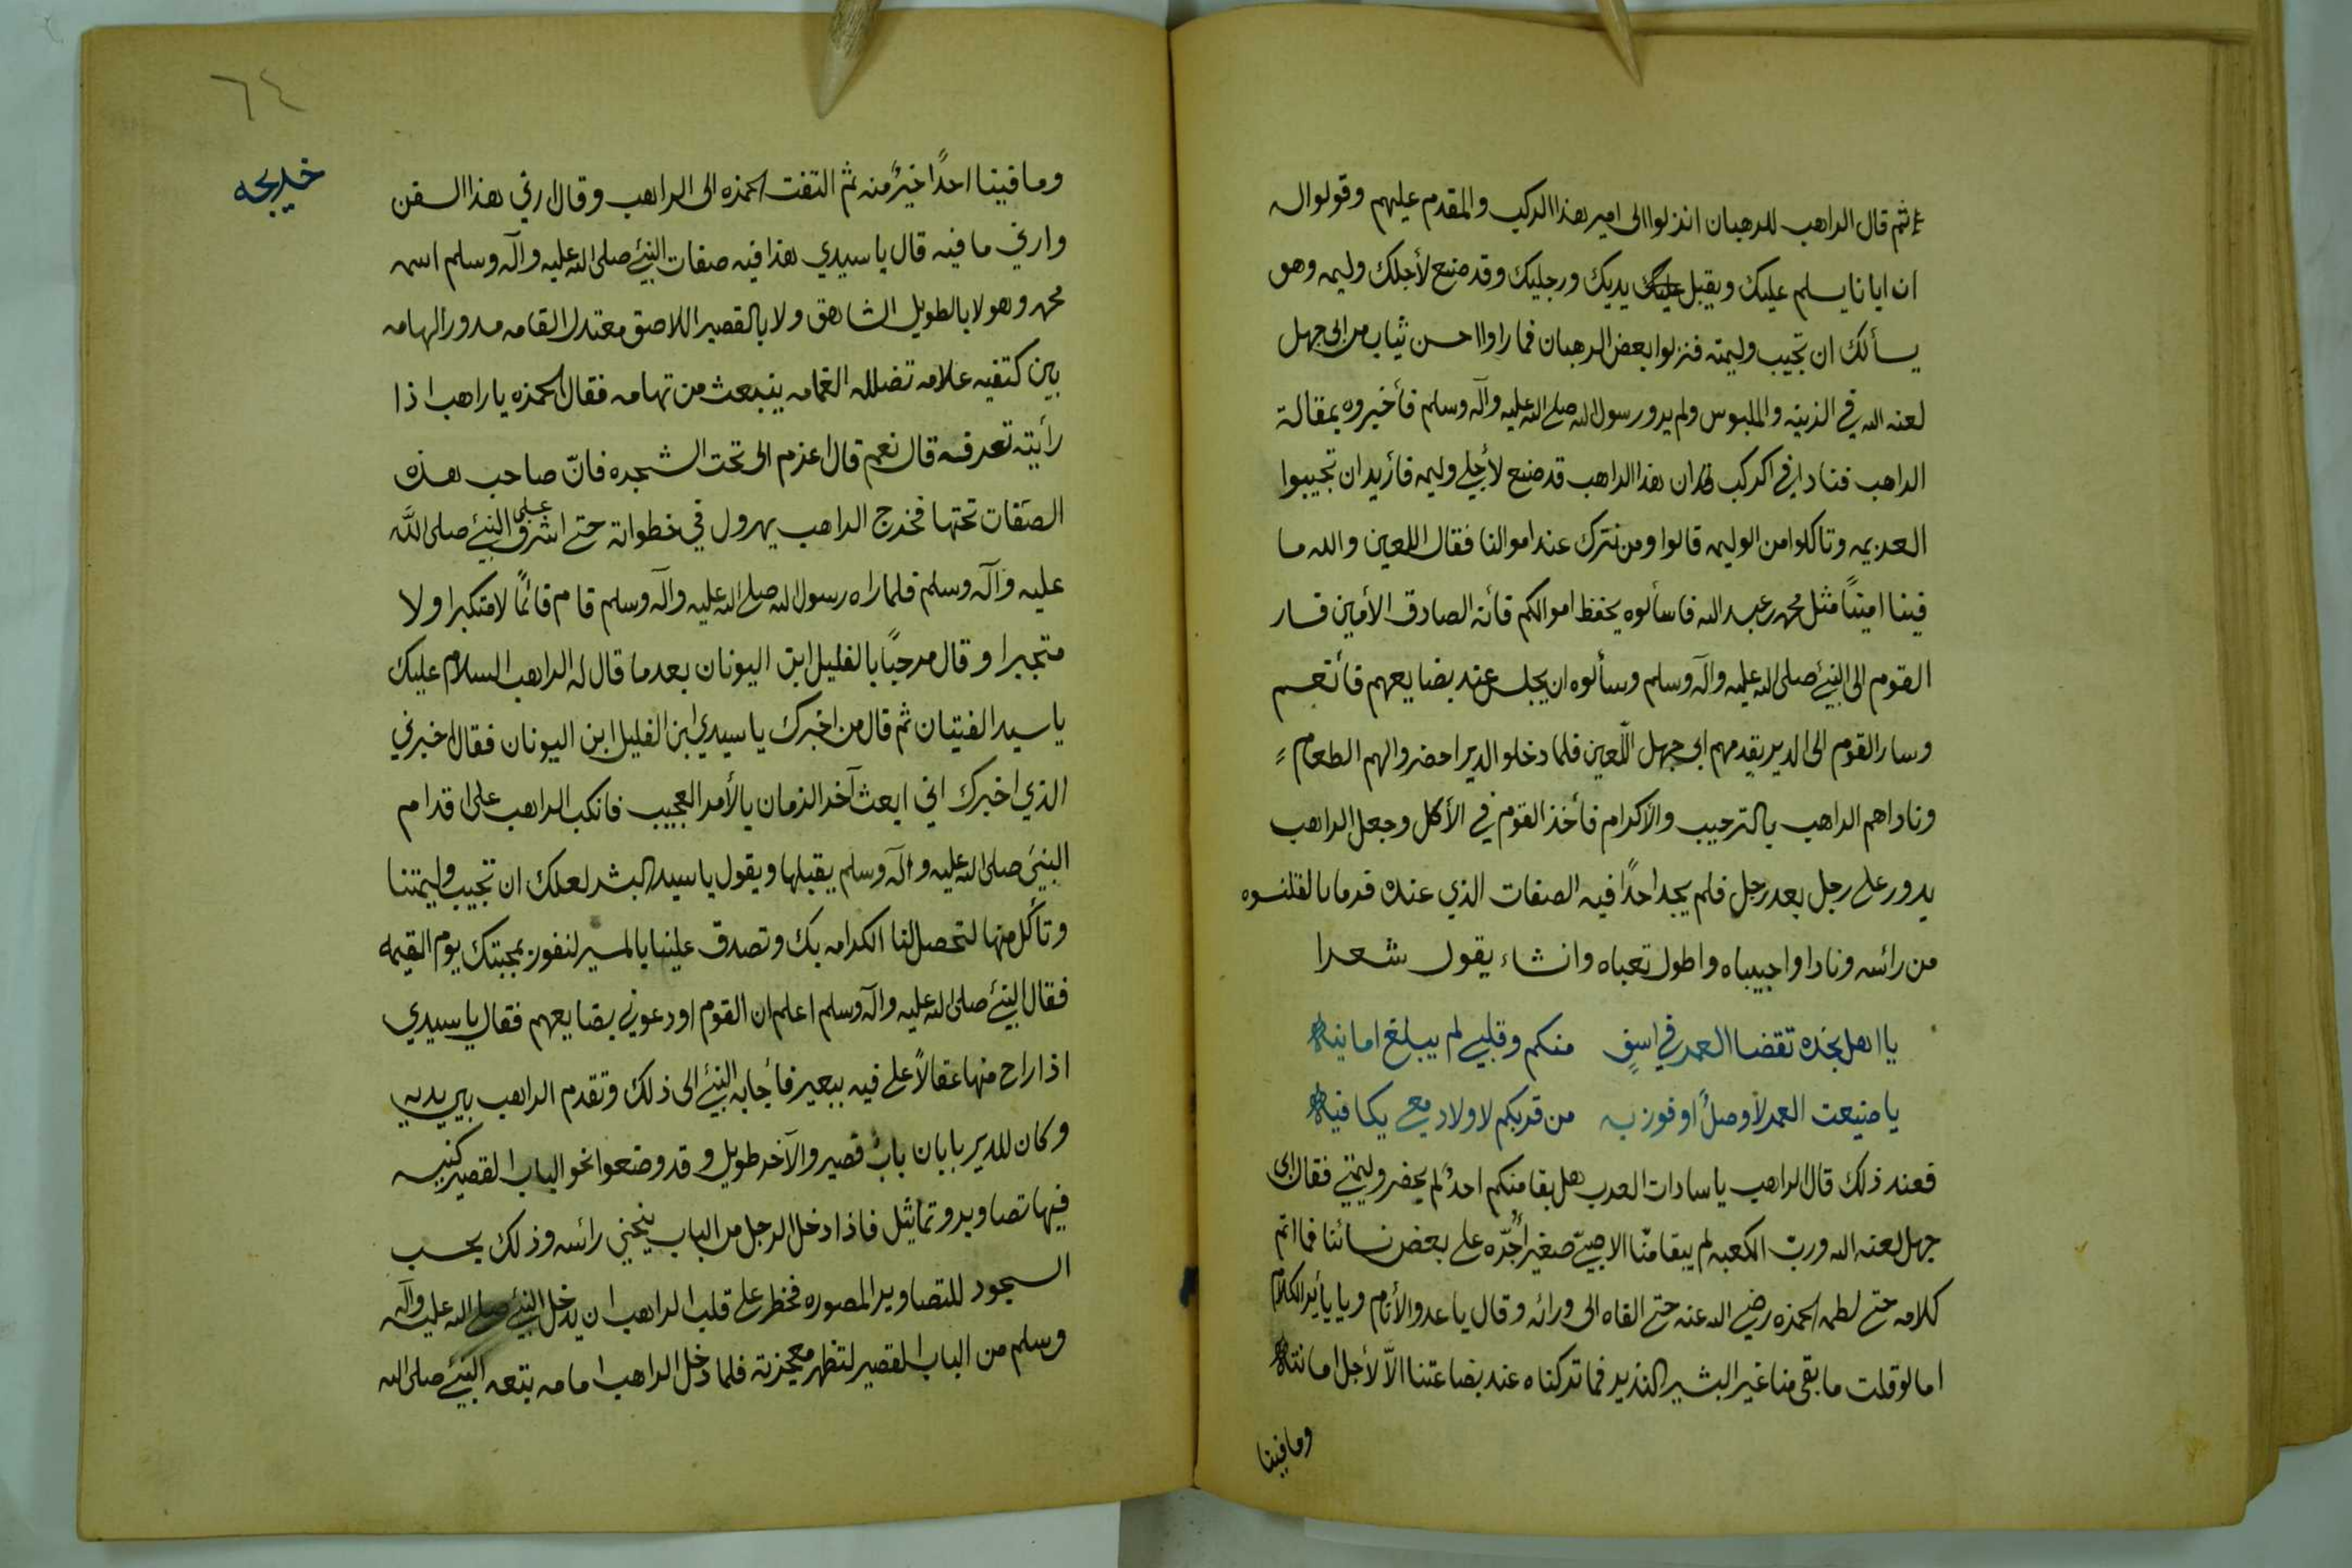 ثم قال الراهب للرهبان انزلوا الى امير هذا الركب والمقدم عليهم وقولوا له
ان ابانا يسلم عليك ويقبل يديك ورجليك وقد صنع لأجلك وليمه وهو
يسألك ان تجيب وليمته فنزلوا بعض الرهبان فما راوا احسن ثياب من ابي جهل
لعنه الله في الزينه والملبوس ولم يرو رسول الله صلى الله عليه وآله وسلم فأخبروه بمقالة
الراهب فنادا في الركب ان هذا الراهب قد صنع لأجلي وليمه فأريد ان تجيبوا
العزيمه وتاكلوا من الوليمه قالوا ومن نترك عند اموالنا فقال اللعين والله ما
فينا امينًا مثل محمد بن عبد الله فاسألوه يحفظ اموالكم فأنه الصادق الأمين فسار
القوم الى النبئ صلى الله عليه وآله وسلم وسألوه ان يجلس عند بضايعهم فأنعم
وسار القوم الى الدير يقدمهم ابي جهل اللّعين فلما دخلو الدير احضروا لهم الطعام
وناداهم الراهب بالترحيب والأكرام فأخذ القوم في الأكل وجعل الراهب
يدور على رجل بعد رجل فلم يجد احدًا فيه الصفات الذي عنده فرما بالقلنسوه
من رائسه ونادا واحبيباه واطول تعباه وانشاء يقول شعرا
يا اهل نجده تقضا العمر في اسفٍ منكم وقلبي لم يبلغ امانيه
يا ضيعت العمر لا وصلٌ افوز به من قربكم لا ولا دمعي يكافيه
فعند ذلك قال الراهب يا سادات العرب هل بقا منكم احدٌ لم يحضر وليمتي فقال ابي
جهل لعنه الله وربّ الكعبه لم يبقا منّا الا صبيّ صغير أجّره على بعض نسائنا فما اتم
كلامه حتى لطمه الحمزه رضي الله عنه حتى القاه الى ورائه وقال يا عدو الأنام
اما لو قلت ما بقي منا غير البشير النذير فما تركناه عند بضاعتنا الاّ لأجل امانته
وما فينا
٦٤
خديجه
وما فينا احدًا خيرٌ منه ثم التفت الحمزه الى الراهب وقال ارني هذا السفر
وارني ما فيه قال يا سيدي هذا فيه صفات النبئ صلى الله عليه وآله وسلم اسمه
محمد وهو لا بالطويل الشاهق ولا بالقصير اللاصق معتدل القامه مدور الهامه
بين كتفيه علامه تضلله الغمامه ينبعث من تهامه فقال الحمزه يا راهب اذا
رأيته تعرفه قال نعم قال اعزم الى تحت الشجره فانّ صاحب هذه
الصفات تحتها فخرج الراهب يهرول في خطواته حتى اشرف على النبئ صلى اللَّه
عليه وآله وسلم فلما راه رسول الله صلى الله عليه وآله وسلم قام قائمًا لا متكبرا ولا
متجبرا وقال مرحبًا بالفليل ابن اليونان بعدما قال له الراهب السلام عليك
يا سيد الفتيان ثم قال من اخبرك يا سيدي ابن الفليل ابن اليونان فقال اخبرني
الذي اخبرك اني ابعث آخر الزمان بالأمر العجيب فانكب الراهب على اقدام
النبئ صلى الله عليه وآله وسلم يقبلها ويقول يا سيد البشر لعلك ان تجيب وليمتنا
وتأكل منها لتحصل لنا الكرامه بك وتصدق علينا بالمسير لنفوز بمحبتك يوم القيمه
فقال النبئ صلى الله عليه وآله وسلم اعلم ان القوم اودعوني بضايعهم فقال يا سيدي
اذا راح منها عقالاً على فيه ببعير فأجابه النبئ الى ذلك وتقدم الراهب بين يديه
وكان للدير بابان بابٌ قصير والآخر طويل وقد وضعوا نحو الباب القصير كنيسه
فيها تصاوير وتماثيل فاذا دخل الرجل من الباب ينحني رائسه وذلك بحسب
السجود للتصاوير المصوره فخطر على قلب الراهب ان يدخل النبئ صلى الله عليه وآله
وسلم من الباب القصير لتظهر معجزته فلما دخل الراهب امامه يتبعه النبئ صلى الله